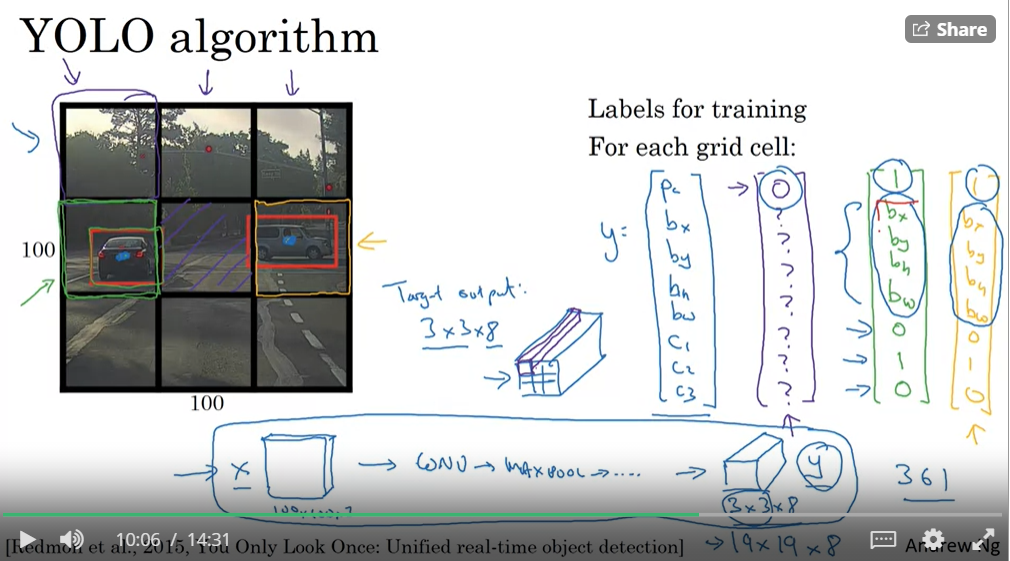 YOLO algorithm
Share
Labels for training
For each grid cell:
100
100
y=
Pc
bx
by
bh
bw
C1
C2
C3
0
?
?
?
?
?
?
?
1
bx
by
bh
bw
0
1
0
1
bx
by
bh
bw
0
1
0
Target output:
3x3x8
x → CONV → MAXPOOL → .... → y
3x3x8
→ 19x19x8
361
10:06 / 14:31
[Redmon et al., 2015, You Only Look Once: Unified real-time object detection]
Andrew Ng